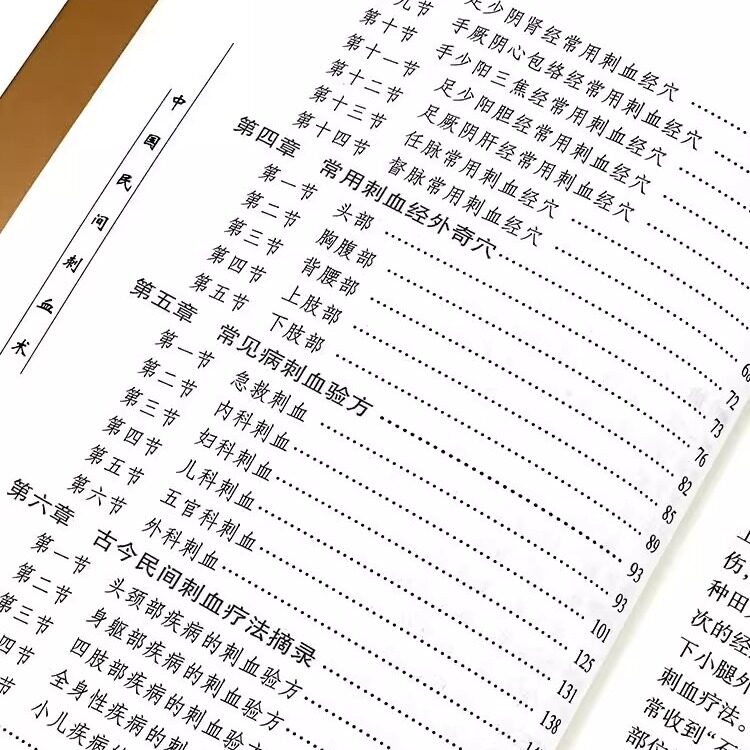 中国民间刺血术
九节 足少阴肾经常用刺血经穴
第十节 手厥阴心包络经常用刺血经穴
第十一节 手少阳三焦经常用刺血经穴
第十二节 足少阳胆经常用刺血经穴
第十三节 足厥阴肝经常用刺血经穴
第十四节 任脉常用刺血经穴
督脉常用刺血经穴 68
第四章 常用刺血经外奇穴 72
第一节 头部 73
第二节 胸腹部 76
第三节 背腰部 82
第四节 上肢部 85
第五节 下肢部 89
第五章 常见病刺血验方 93
第一节 急救刺血 93
第二节 内科刺血 101
第三节 妇科刺血 125
第四节 儿科刺血 131
第五节 五官科刺血 138
第六节 外科刺血
第六章 古今民间刺血疗法摘录
第一节 头颈部疾病的刺血验方
第二节 身躯部疾病的刺血验方
第三节 四肢部疾病的刺血验方
四节 全身性疾病的刺血验方
节 小儿疾病的刺血验方
伤,
种田
次的经
下小腿外
刺血疗法。
常收到“石
部位